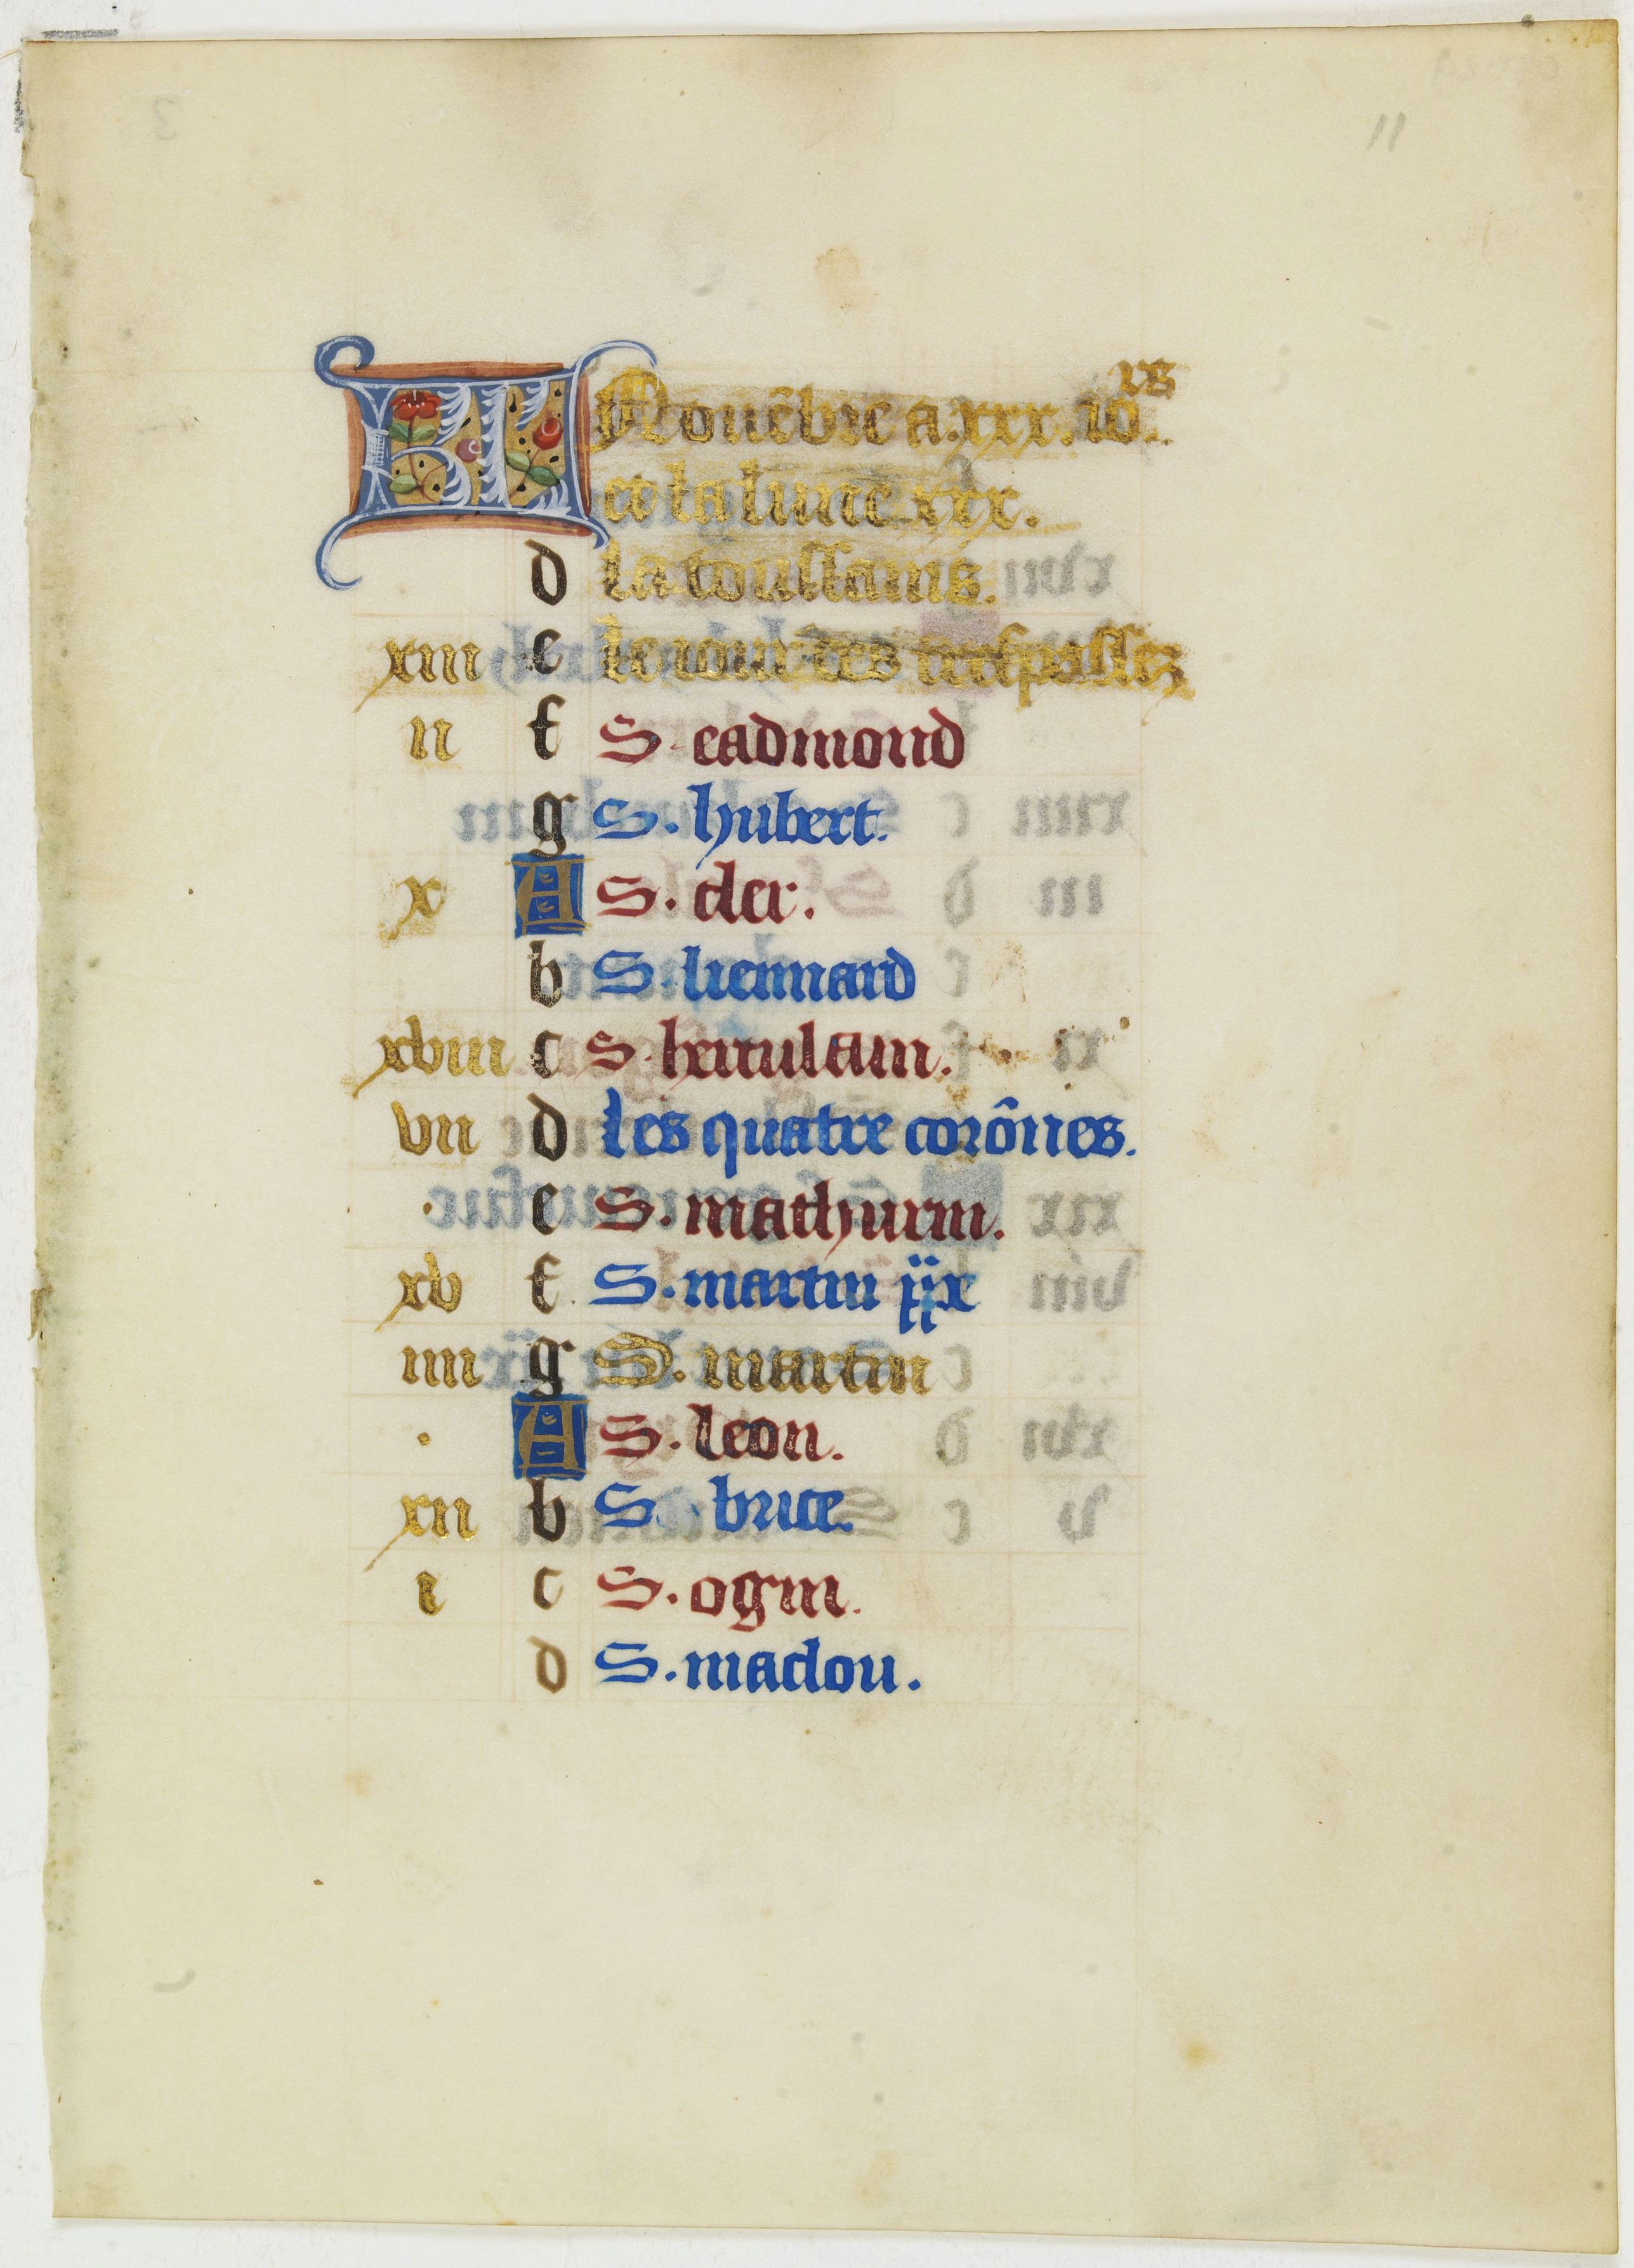 11
KL Novēbre a .xxx. io.rs
et la lune xxx.
d la toussains.
xiii e le iour des trespassez
ii f S. eadmond
g S. hubert.
x A S. cler.
b S. liennard
xviii c S. herculain.
vii d les quatre corōnes.
. e S. mathurin.
xv f S. martin
iiii g S. martin
. A S. leon.
xii b S. brice.
i c S. ogin.
d S. maclou.